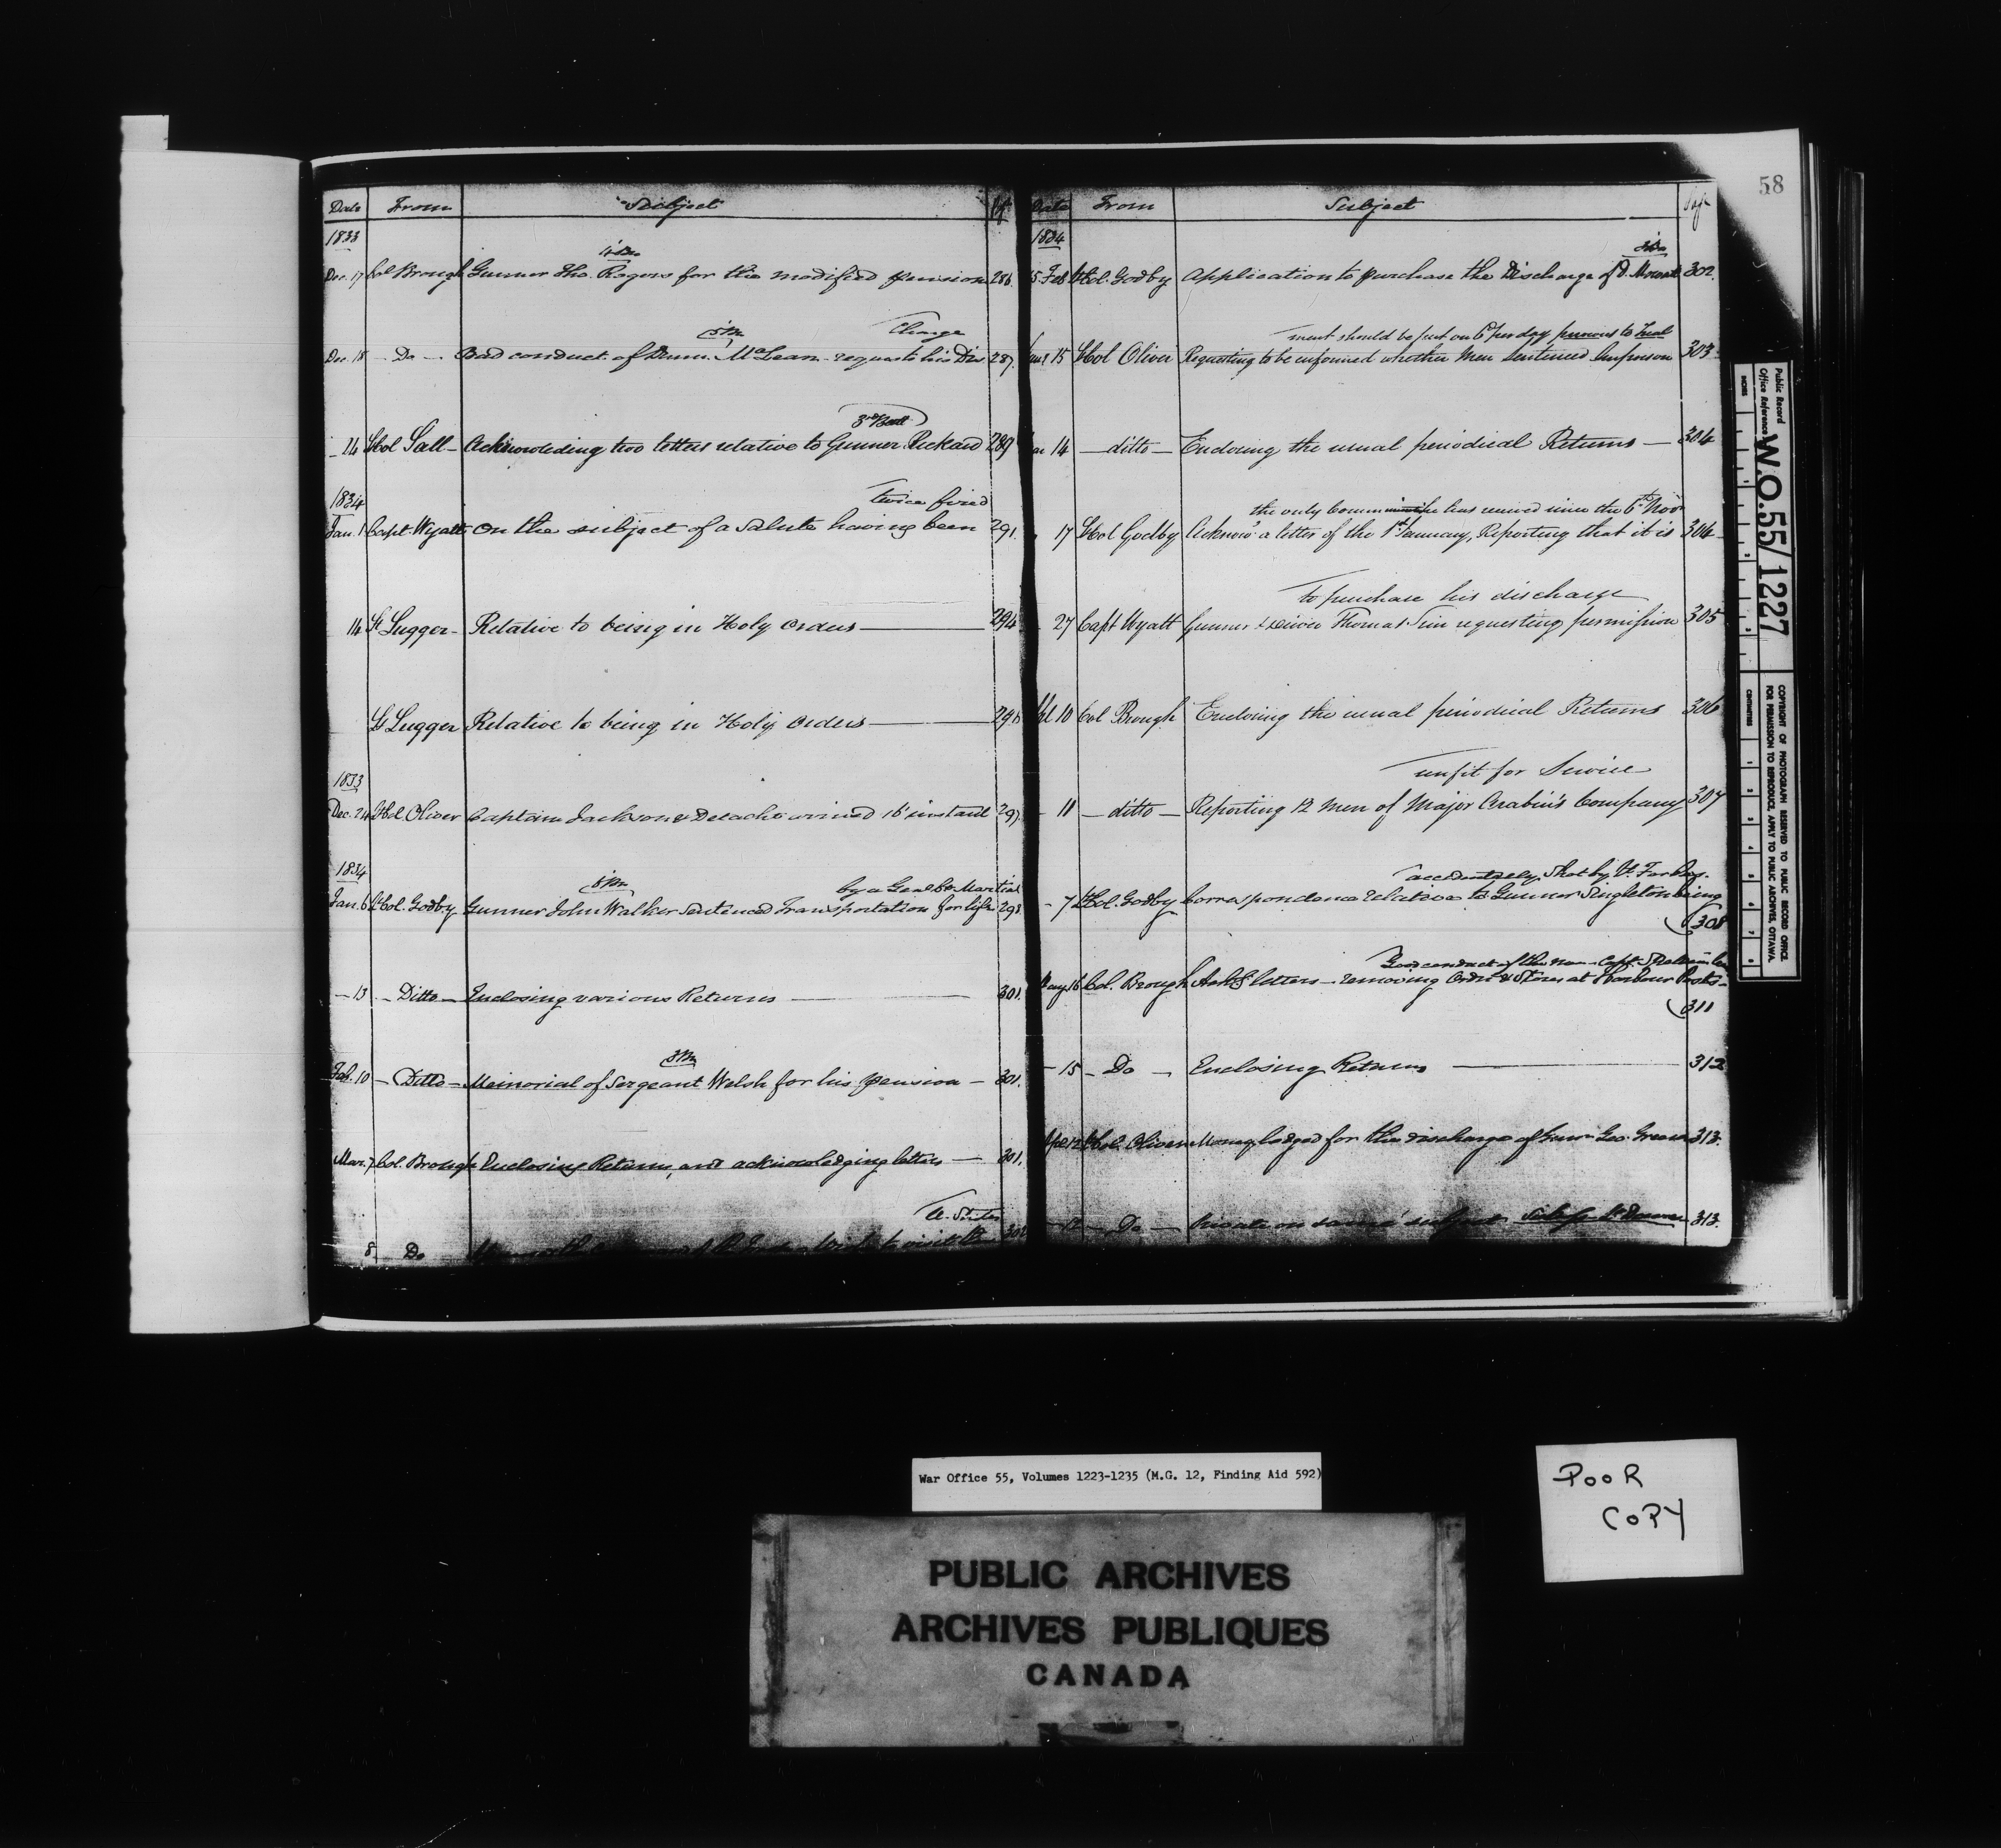 58
Date From Subject Pa
1833
4 Bn
Dec. 17 Col Brough Gunner Tho. Rogers for the modified pension 286.
5 Bn Charge
Dec. 18 — Do — Bad conduct of Drumr. McLean - requests his Dis 287.
3rd Batt
— 14 Lt Col Sall — Acknowleding two letters relative to Gunner Rickard 289
1834
twice fired
Jan. 1 Capt. Wyatt On the subject of a Salute having been 291.
14 Lt Lugger — Relative to being in Holy Orders — 294
Lt Lugger Relative to being in Holy Orders —
1833
Dec. 24 Lt Col. Oliver Captain Jackson & Detacht. arrived 16 instant 297.
1834
8 Bn by a Genl Co. Martial
Jan. 6 Lt Col. Godby Gunner John Walker Sentenced Transportation for life 298.
— 13 — Ditto — Enclosing various Returns — 301.
8 Bn
Feb. 10 — Ditto — Memorial of Sergeant Welsh for his pension — 301.
Mar. 7 Col. Brough Enclosing Returns, and acknowledging letters — 301.
U. States
8 Do to visit the 302
Date From Subject Page
1834
8 Bn
5 Feb Lt Col. Godby Application to purchase the Discharge of D. Mowat 302.
ment should be put on 6d per day previous to trial
15 Lt Col Oliver Requesting to be informed whether Men Sentenced Imprison 303
14 — ditto — Enclosing the usual periodical Returns — 304
the only he has received since the 6th Novr
17 Lt Col Godby Acknowg a letter of the 1st January, Reporting that it is 304
to purchase his discharge
27 Capt Wyatt Gunner & Driver Thomas Sim requesting permission 305
10 Col Brough Enclosing the usual periodical Returns 306
unfit for Service
— 11 — ditto — Reporting 12 Men of Major Arabin's Company 307
accidentally Shot by Lt.
— 7 Lt Col. Godby Correspondence relative to Gunner Singleton being
308
Good conduct of the
16 Col. Brough letters — removing Ordn. & Stores at Harbour Posts —
311
— 15 — Do — Enclosing Returns — 312
12 Lt Col. Oliver Money lodged for the discharge of Gunr. Geo. Green 313.
— 12 — Do — Private on same subject 313.
Public Record
Office Reference
W.O.55/1227
INCHES
CENTIMETRES
COPYRIGHT OF PHOTOGRAPH RESERVED TO PUBLIC RECORD OFFICE.
FOR PERMISSION TO REPRODUCE APPLY TO PUBLIC ARCHIVES, OTTAWA.
War Office 55, Volumes 1223-1235 (M.G. 12, Finding Aid 592)
POOR
COPY
PUBLIC ARCHIVES
ARCHIVES PUBLIQUES
CANADA